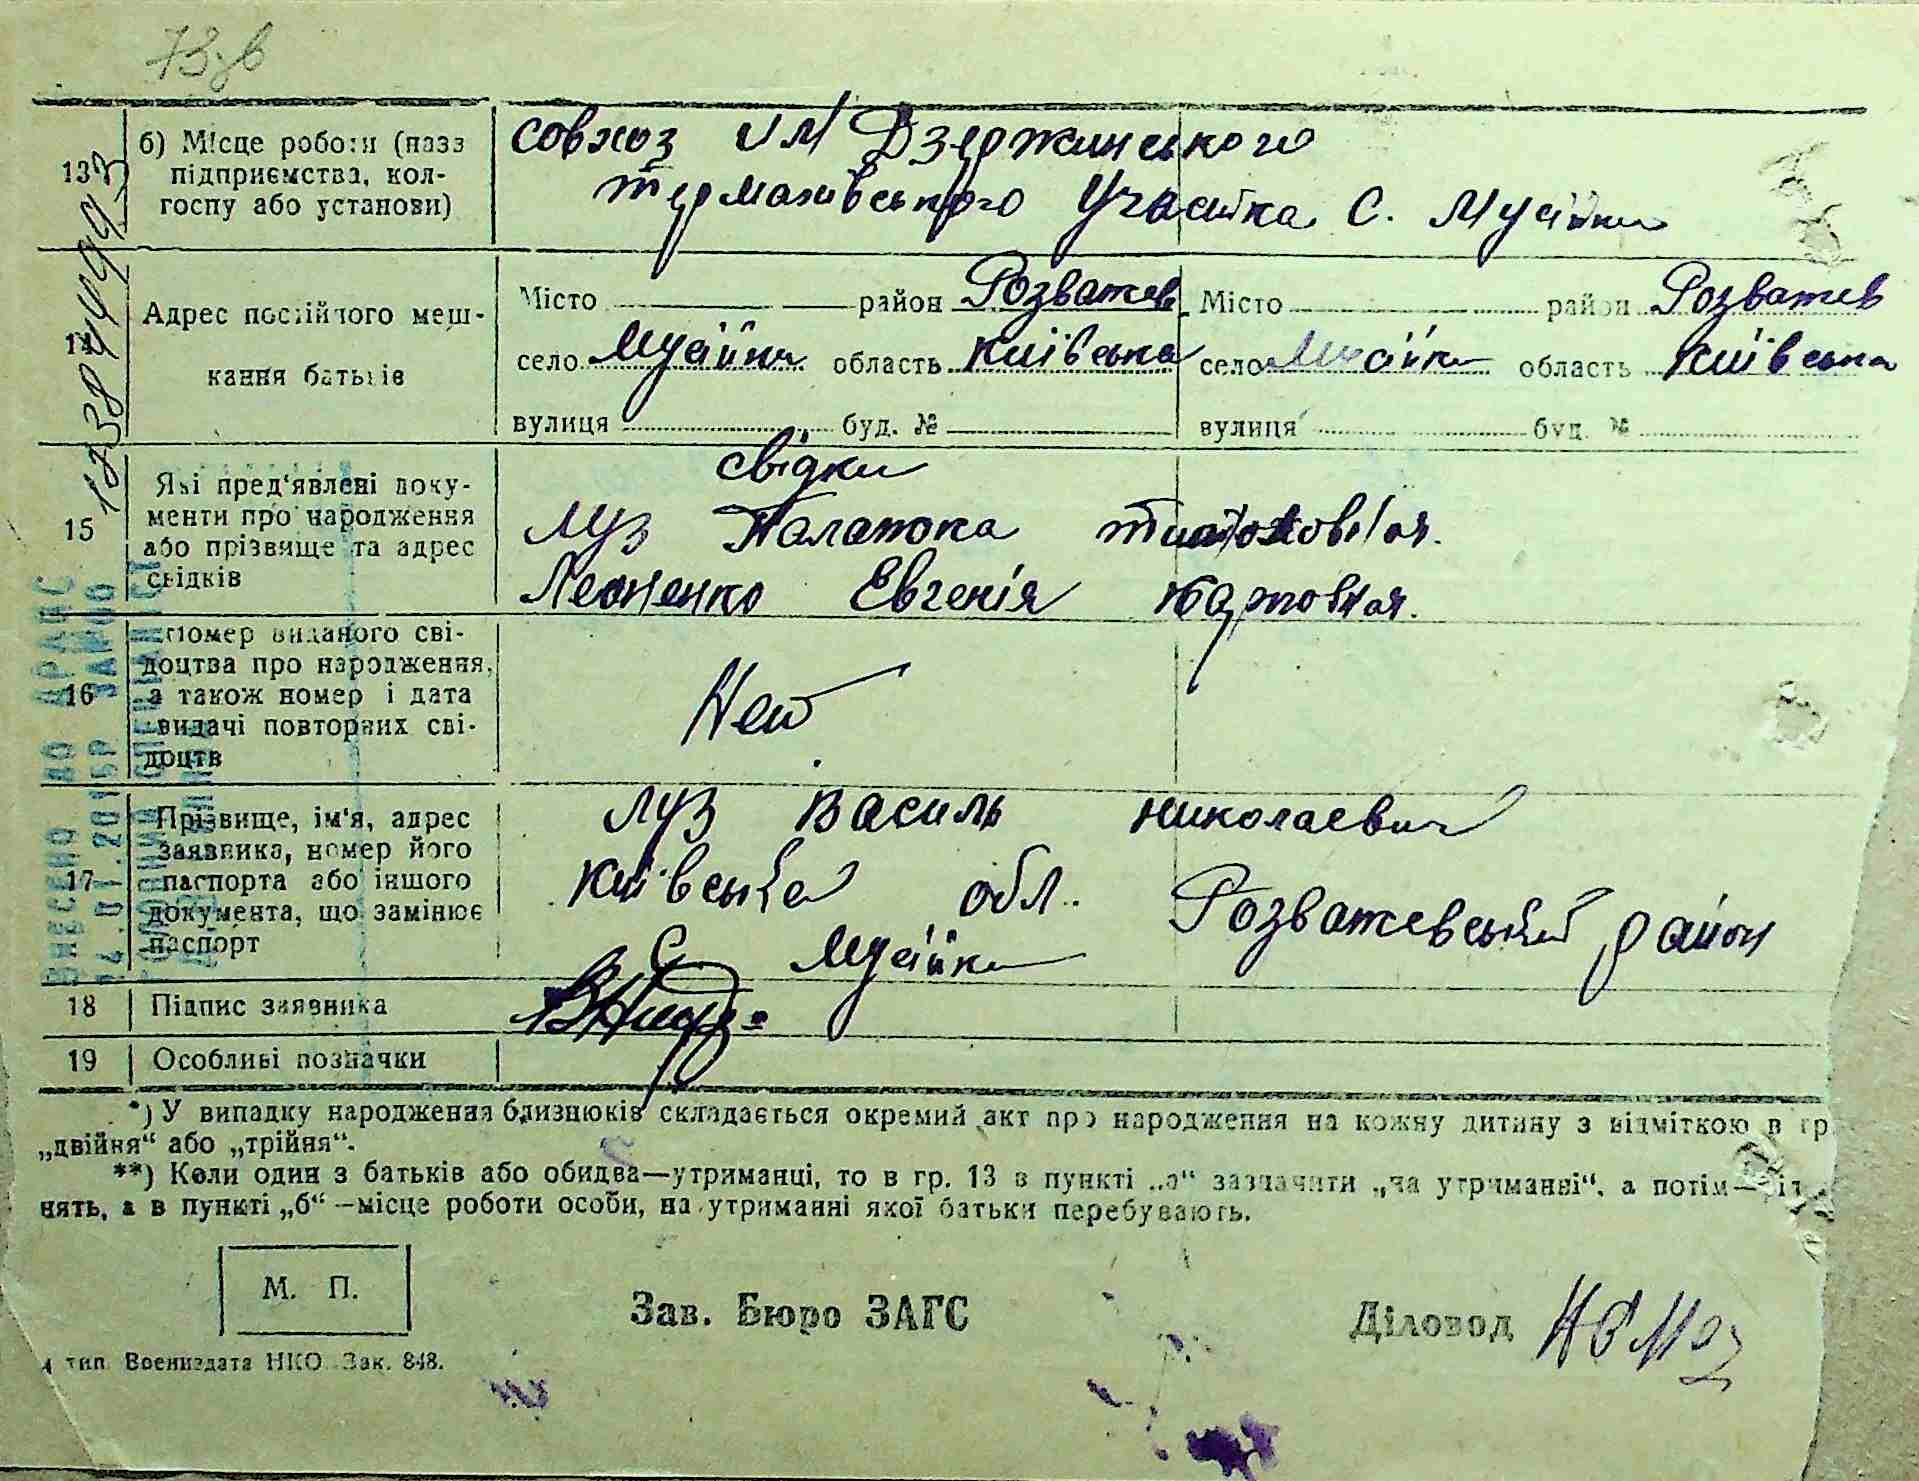 73 зв
13
б) Місце роботи (назв
підприємства, кол-
госпу або установи)
совхоз им Дзержинського
термахівського Участка с. Мусійки
14
Адрес постійного меш-
кання батьків
Місто район Розважев Місто район Розважев
село Мусійки область Київська село Мусійки область Київська
вулиця буд. № вулиця буд. №
15
Які пред'явлені доку-
менти про народження
або прізвище та адрес
свідків
свідки
Луз Палажка
Леоненко Евгенія Карповная.
16
Номер виданого сві-
доцтва про народження,
а також номер і дата
видачі повторних сві-
доцтв
Нет
17
Прізвище, ім'я, адрес
заявника, номер його
паспорта або іншого
документа, що замінює
паспорт
Луз Василь Николаевич
Київська обл. Розважевський район
с Мусійки
18 Підпис заявника
19 Особливі позначки
*) У випадку народження близнюків складається окремий акт про народження на кожну дитину з відміткою в гр
„двійня“ або „трійня“.
**) Коли один з батьків або обидва—утриманці, то в гр. 13 в пункті „а“ зазначити „на утриманні“, а потім—
нять, а в пункті „б“ —місце роботи особи, на утриманні якої батьки перебувають.
М. П.
Зав. Бюро ЗАГС
Діловод
тип. Воениздата НКО. Зак. 848.
ВНЕСЕНО ДО ДРАЦС
14.01.2015Р